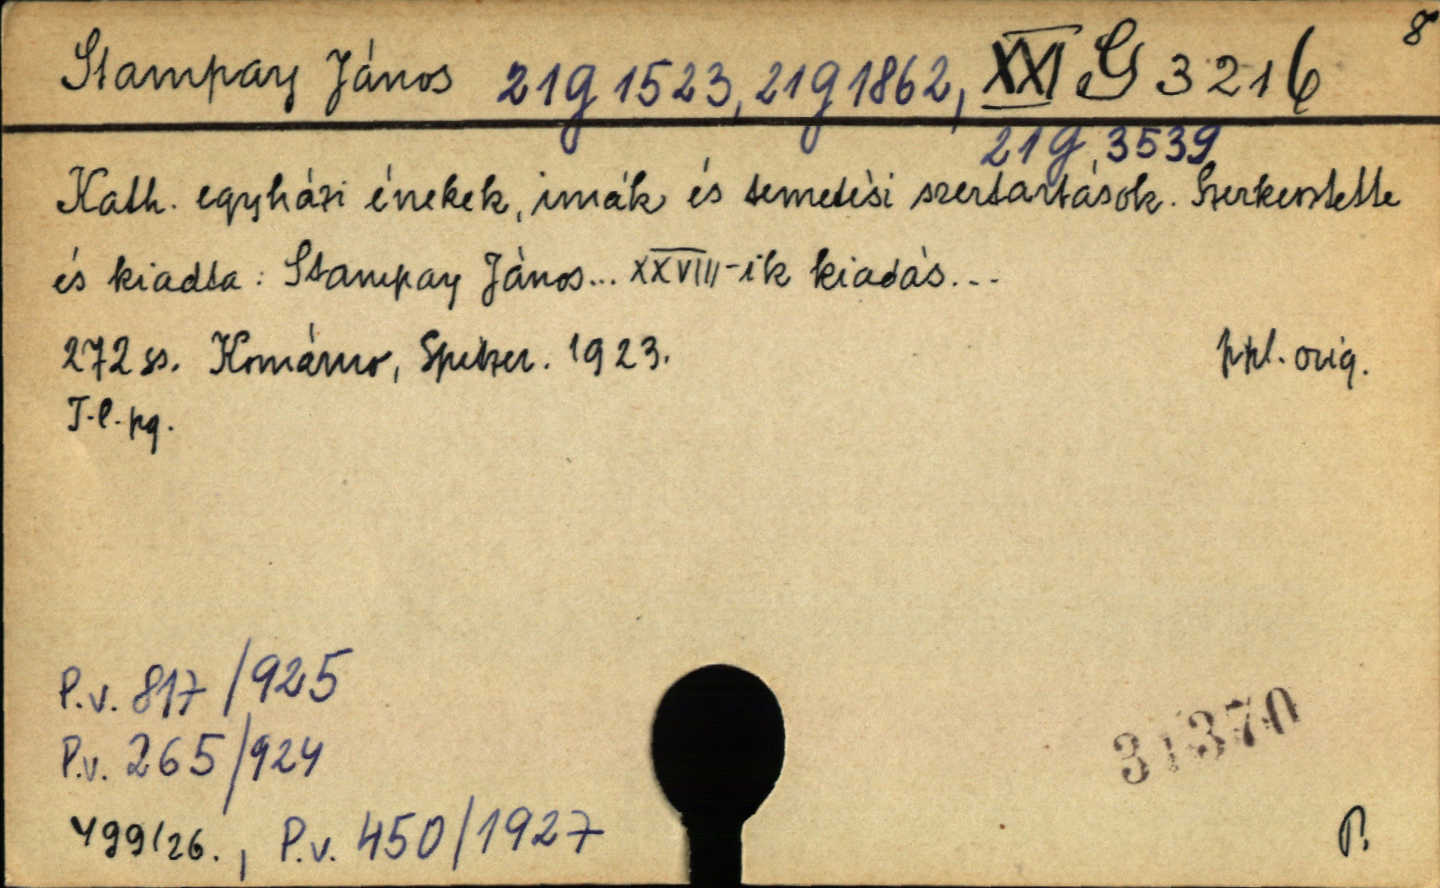 8
Stampay János 21g 1523, 21g 1862, XXI G 3216
21g, 3539
Kath. egyházi énekek, imák és temetési szertartások. Szerkesztette
és kiadta: Stampay János... XXVIII-ik kiadás...
272 ss. Komárno, Spitzer. 1923. ppl. orig.
T-l-pg.
P.v. 817/925
P.v. 265/924
499/26., P.v. 450/1927
31370
P.